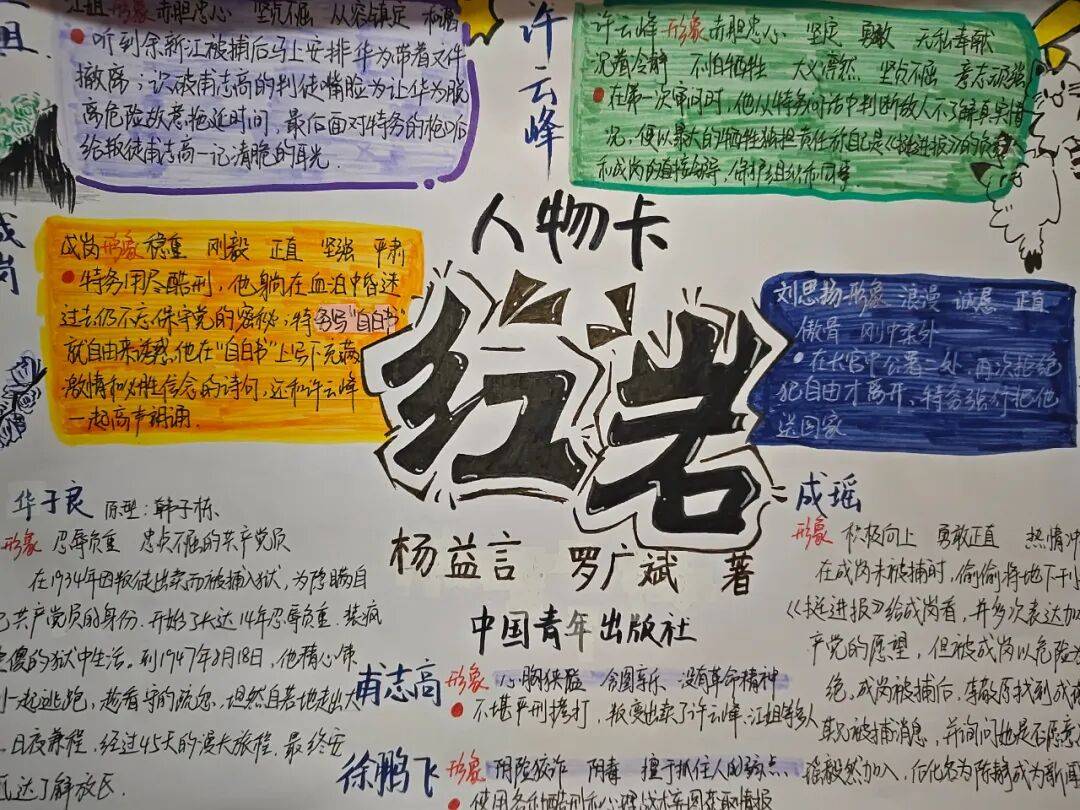 江姐 形象 赤胆忠心 坚贞不屈 从容镇定
听到余新江被捕后马上安排华为带着文件
撤离；识破甫志高的叛徒嘴脸为让华为脱
离危险故意拖延时间，最后面对特务的枪口
给叛徒甫志高一记清脆的耳光.
许云峰
许云峰 形象 赤胆忠心 坚定 勇敢 无私奉献
沉着冷静 不怕牺牲 大义凛然 坚贞不屈 意志顽强
在第一次审问时,他从特务问话中判断敌人不了解真实情
况，便以最大的牺牲独担责任称自己是《挺进报》的负责
和成岗的直接领导，保护组织和同事
成岗
成岗形象 稳重 刚毅 正直 坚强 严肃
特务用尽酷刑，他躺在血泊中昏迷
过去仍不忘保守党的密秘；特务写"自白书"
就自由来诱惑,他在"自白书"上写下充满
激情和必胜信念的诗句，还和许云峰
一起高声朗诵.
人物卡
红岩
杨益言 罗广斌 著
中国青年出版社
刘思扬 形象 浪漫 诚恳 正直
傲骨 刚中柔外
在长官中公署二处,再次拒绝
犯自由才离开、特务强行把他
送回家
华子良 原型：韩子栋
形象 忍辱负重 忠贞不屈的共产党员
在1934年因叛徒出卖而被捕入狱，为隐瞒自
己共产党员的身份.开始了长达14年忍辱负重、装疯
傻的狱中生活。到1947年8月18日，他精心
一起逃跑，趁看守的疏忽，坦然自若地走出大
日夜兼程，经过45天的漫长旅程，最终安
抵达了解放区.
成瑶
形象 积极向上 勇敢正直 热情冲
在成岗未被捕时，偷偷将地下刊
《挺进报》给成岗看，并多次表达加
产党的愿望，但被成岗以危险为
绝，成岗被捕后，李敬原找到成瑶
哥被捕消息，并询问她是否愿意
瑶毅然加入，后化名为陈静成为新闻
甫志高 形象 心胸狭隘 贪图享乐 没有革命精神
不堪严刑拷打，叛变出卖了许云峰、江姐等多人
徐鹏飞 形象 阴险狡诈 阴毒 擅于抓住人的弱点、
使用各种酷刑和心理战术企图获取情报